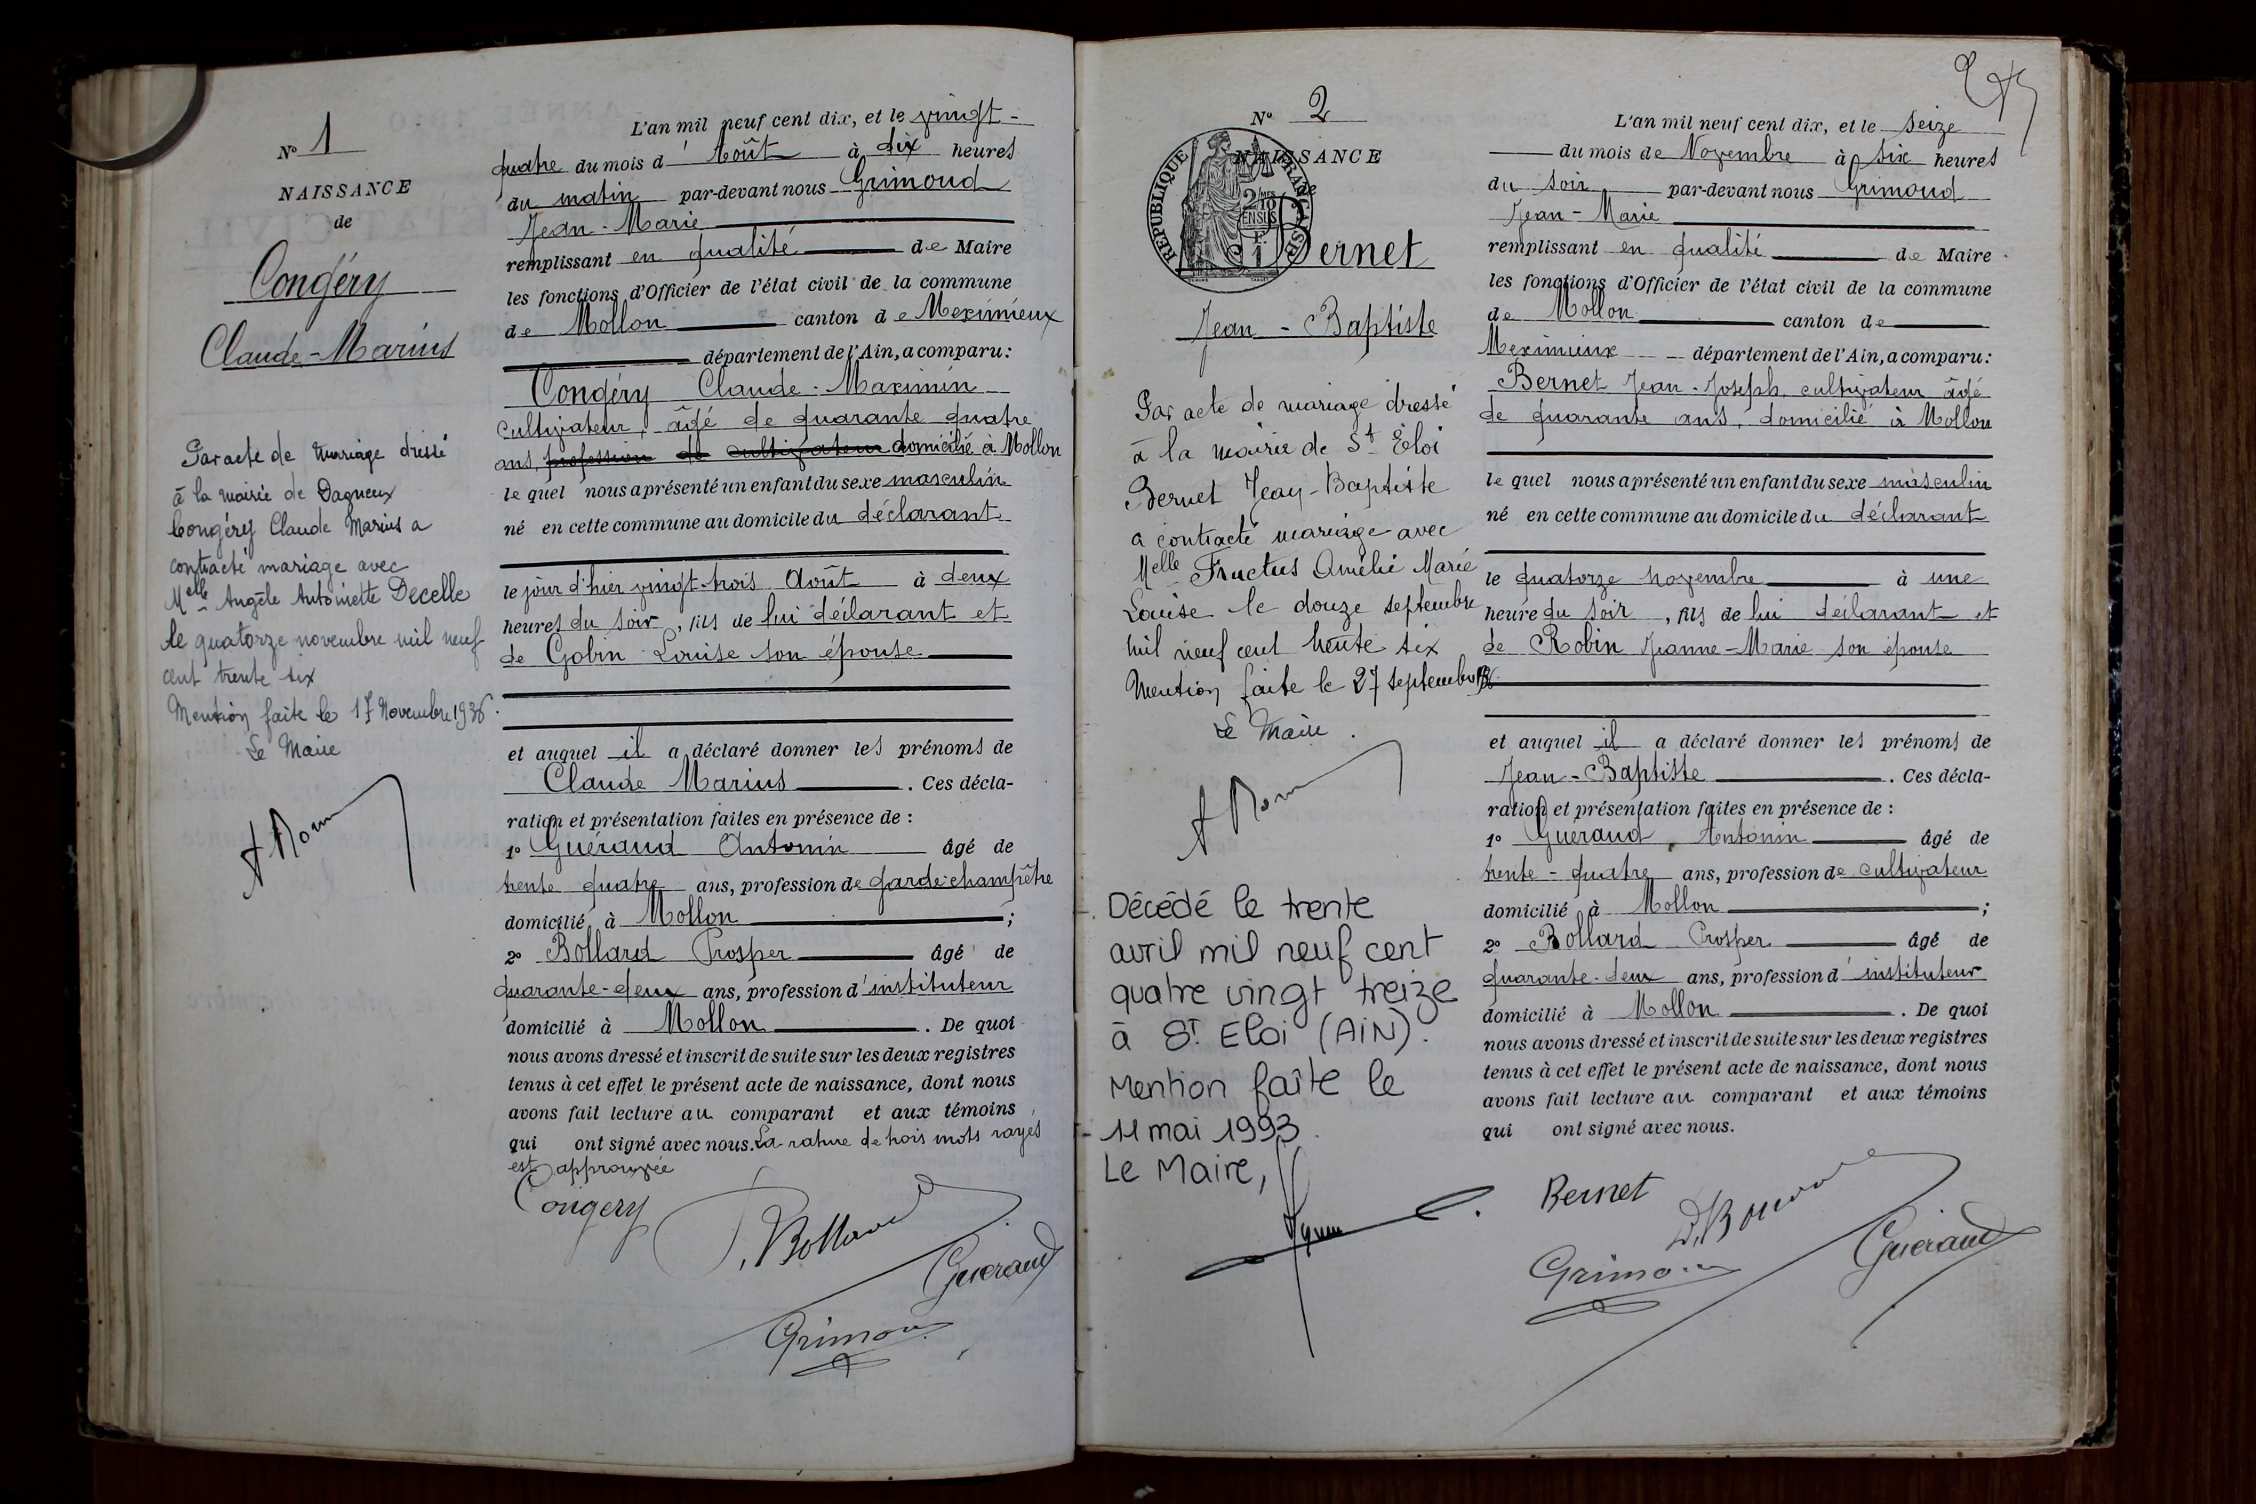 N° 1
NAISSANCE
de
Congéry
Claude-Marius
Par acte de mariage dressé
à la mairie de Dagneux
Congéry Claude Marius a
contracté mariage avec
Melle Angèle Antoinette Decelle
le quatorze novembre mil neuf
cent trente six
Mention faite le 17 Novembre 1936.
Le Maire
L'an mil neuf cent dix, et le vingt-
quatre du mois d'Août à dix heures
du matin par-devant nous Grimoud
Jean-Marie
remplissant en qualité de Maire
les fonctions d'Officier de l'état civil de la commune
de Mollon canton de Meximieux
département de l'Ain, a comparu:
Congéry Claude-Maximin
cultivateur, âgé de quarante quatre
ans, profession de cultivateur domicilié à Mollon
le quel nous a présenté un enfant du sexe masculin
né en cette commune au domicile du déclarant
le jour d'hier vingt-trois Août à deux
heures du soir, fils de lui déclarant et
de Gobin Louise son épouse
et auquel il a déclaré donner les prénoms de
Claude Marius. Ces décla-
ration et présentation faites en présence de :
1° Guéraud Antonin âgé de
trente quatre ans, profession de garde-champêtre
domicilié à Mollon ;
2° Bollard Prosper âgé de
quarante-deux ans, profession d'instituteur
domicilié à Mollon. De quoi
nous avons dressé et inscrit de suite sur les deux registres
tenus à cet effet le présent acte de naissance, dont nous
avons fait lecture au comparant et aux témoins
qui ont signé avec nous. La rature de trois mots rayés
est approuvée
Congery
P. Bollard
Gueraud
Grimoud
N° 2
NAISSANCE
de
RÉPUBLIQUE FRANÇAISE
2/10
EN SUS
Bernet
Jean-Baptiste
Par acte de mariage dressé
à la mairie de St Eloi
Bernet Jean-Baptiste
a contracté mariage avec
Melle Fructus Amélie Marie
Louise le douze septembre
mil neuf cent trente six
Mention faite le 27 septembre 1936
Le Maire.
Décédé le trente
avril mil neuf cent
quatre vingt treize
à St Eloi (AIN).
Mention faite le
11 mai 1993.
Le Maire,
L'an mil neuf cent dix, et le seize
du mois de Novembre à six heures
du soir par-devant nous Grimoud
Jean-Marie
remplissant en qualité de Maire
les fonctions d'Officier de l'état civil de la commune
de Mollon canton de
Meximieux département de l'Ain, a comparu:
Bernet Jean-Joseph, cultivateur âgé
de quarante ans, domicilié à Mollon
le quel nous a présenté un enfant du sexe masculin
né en cette commune au domicile du déclarant
le quatorze novembre à une
heure du soir, fils de lui déclarant et
de Robin Jeanne-Marie son épouse
et auquel il a déclaré donner les prénoms de
Jean-Baptiste. Ces décla-
ration et présentation faites en présence de :
1° Guéraud, Antonin âgé de
trente-quatre ans, profession de cultivateur
domicilié à Mollon ;
2° Bollard Prosper âgé de
quarante-deux ans, profession d'instituteur
domicilié à Mollon. De quoi
nous avons dressé et inscrit de suite sur les deux registres
tenus à cet effet le présent acte de naissance, dont nous
avons fait lecture au comparant et aux témoins
qui ont signé avec nous.
Bernet
Grimoud
Gueraud